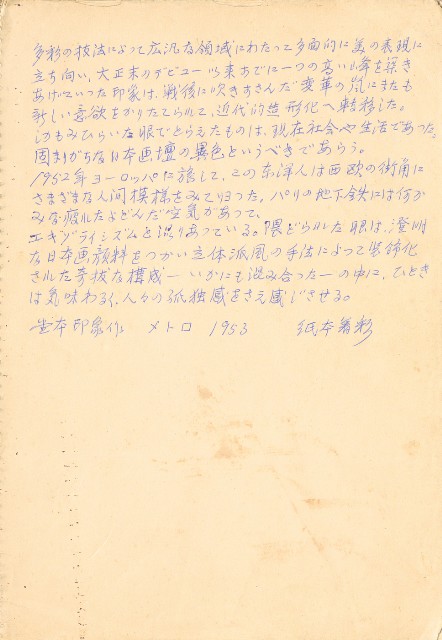 多彩の技法によって広汎な領域にわたって多面的に美の表現に
立ち向い、大正末のデビュー以来すでに一つの高い峰を築き
あげていった印象は、戦後に吹きすさんだ変革の嵐にまたも
新しい意欲をかりたてられて、近代的造形化へ転移した。
みひらいた眼でとらえたものは、現在社会や生活であった。
固まりがちな日本画壇の異色というべきであろう。
1952年ヨーロッパに旅して、この東洋人は西欧の街角に
さまざまな人间模様をみて帰った。パリの地下鉄には何か
みな疲れたよどんだ空気があって、
エキゾティシズムと混りあっている。隈どられた眼は、澄明
な日本画顔料をつかい立体派風の手法によって装飾化
された奇抜な構成ーいかにも混み合ったーの中に、ひととき
は気味わるく、人々の孤独感をさえ感じさせる。
堂本印象作 メトロ 1953 紙本着彩